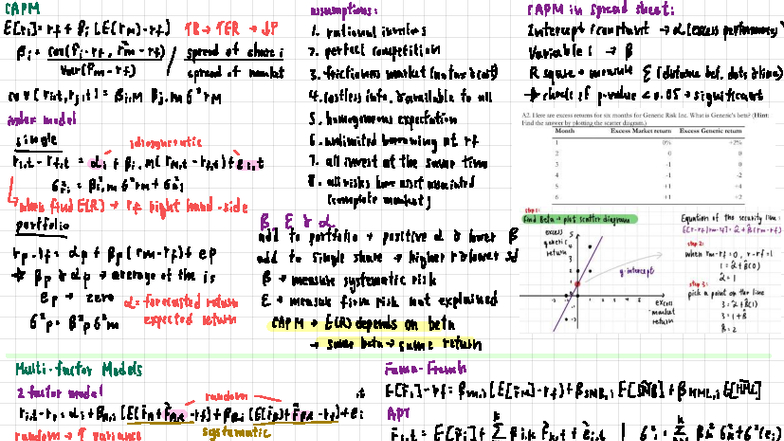 CAPM
E[ri] = rf + βi [E(rm) - rf]
↑R → ↑ER → ↓P
βi = cov(r̃i - rf, r̃m - rf) / Var(r̃m - rf) / spread of share i / spread of market
cov[ri,t, rj,t] = βi,M βj,M σ²rM
index model
single
idiosyncratic
ri,t - rf,t = αi + βi,M (rM,t - rf,t) + εi,t
when find E(R) → rf right hand-side
portfolio
rp - rf = αp + βp (rm - rf) + ep
* βp & αp → average of the is
ep → zero
α = forecasted return
expected return
σ²p = β²p σ²m
assumptions:
1. rational investors
2. perfect competition
3. frictionless market
4. costless info. & available to all
5. homogenous expectation
6. unlimited borrowing at rf
7. all invest at the same time
8. all risks have asset associated
(complete market)
β, ε & α
add to portfolio → positive α & lower β
add to single share → higher α & lower sd
β → measure systematic risk
ε → measure firm risk not explained
CAPM → E(R) depends on beta
→ same beta → same return
CAPM in spread sheet:
Intercept/constant → α (excess performance)
Variable 1 → β
R square → measure ε (distance bet. dots & line)
→ check if p-value < 0.05 → significant
A2. Here are excess returns for six months for Generic Risk Inc. What is Generic's beta? (Hint:
Find the answer by plotting the scatter diagram.)
Month Excess Market return Excess Generic return
1 0% +2%
2 0 0
3 -1 0
4 -1 -2
5 +1 +4
6 +1 +2
step 1:
find beta → plot scatter diagram
excess
generic
return
y-intercept
excess
market
return
Equation of the security line:
step 2:
when rm-rf = 0, r-rf = 1
1 = α̂ + β̂(0)
α̂ = 1
step 3:
pick a point on the line
3 = α̂ + β̂(1)
3 = 1 + β̂
β̂ = 2
Multi-factor Models
2 factor model
random
systematic
random → ↑ variance
Fama-French
E[r̃i] - rf = βm,i (E[r̃M] - rf) + βSMB,i E[SMB] + βHML,i E[HML]
APT